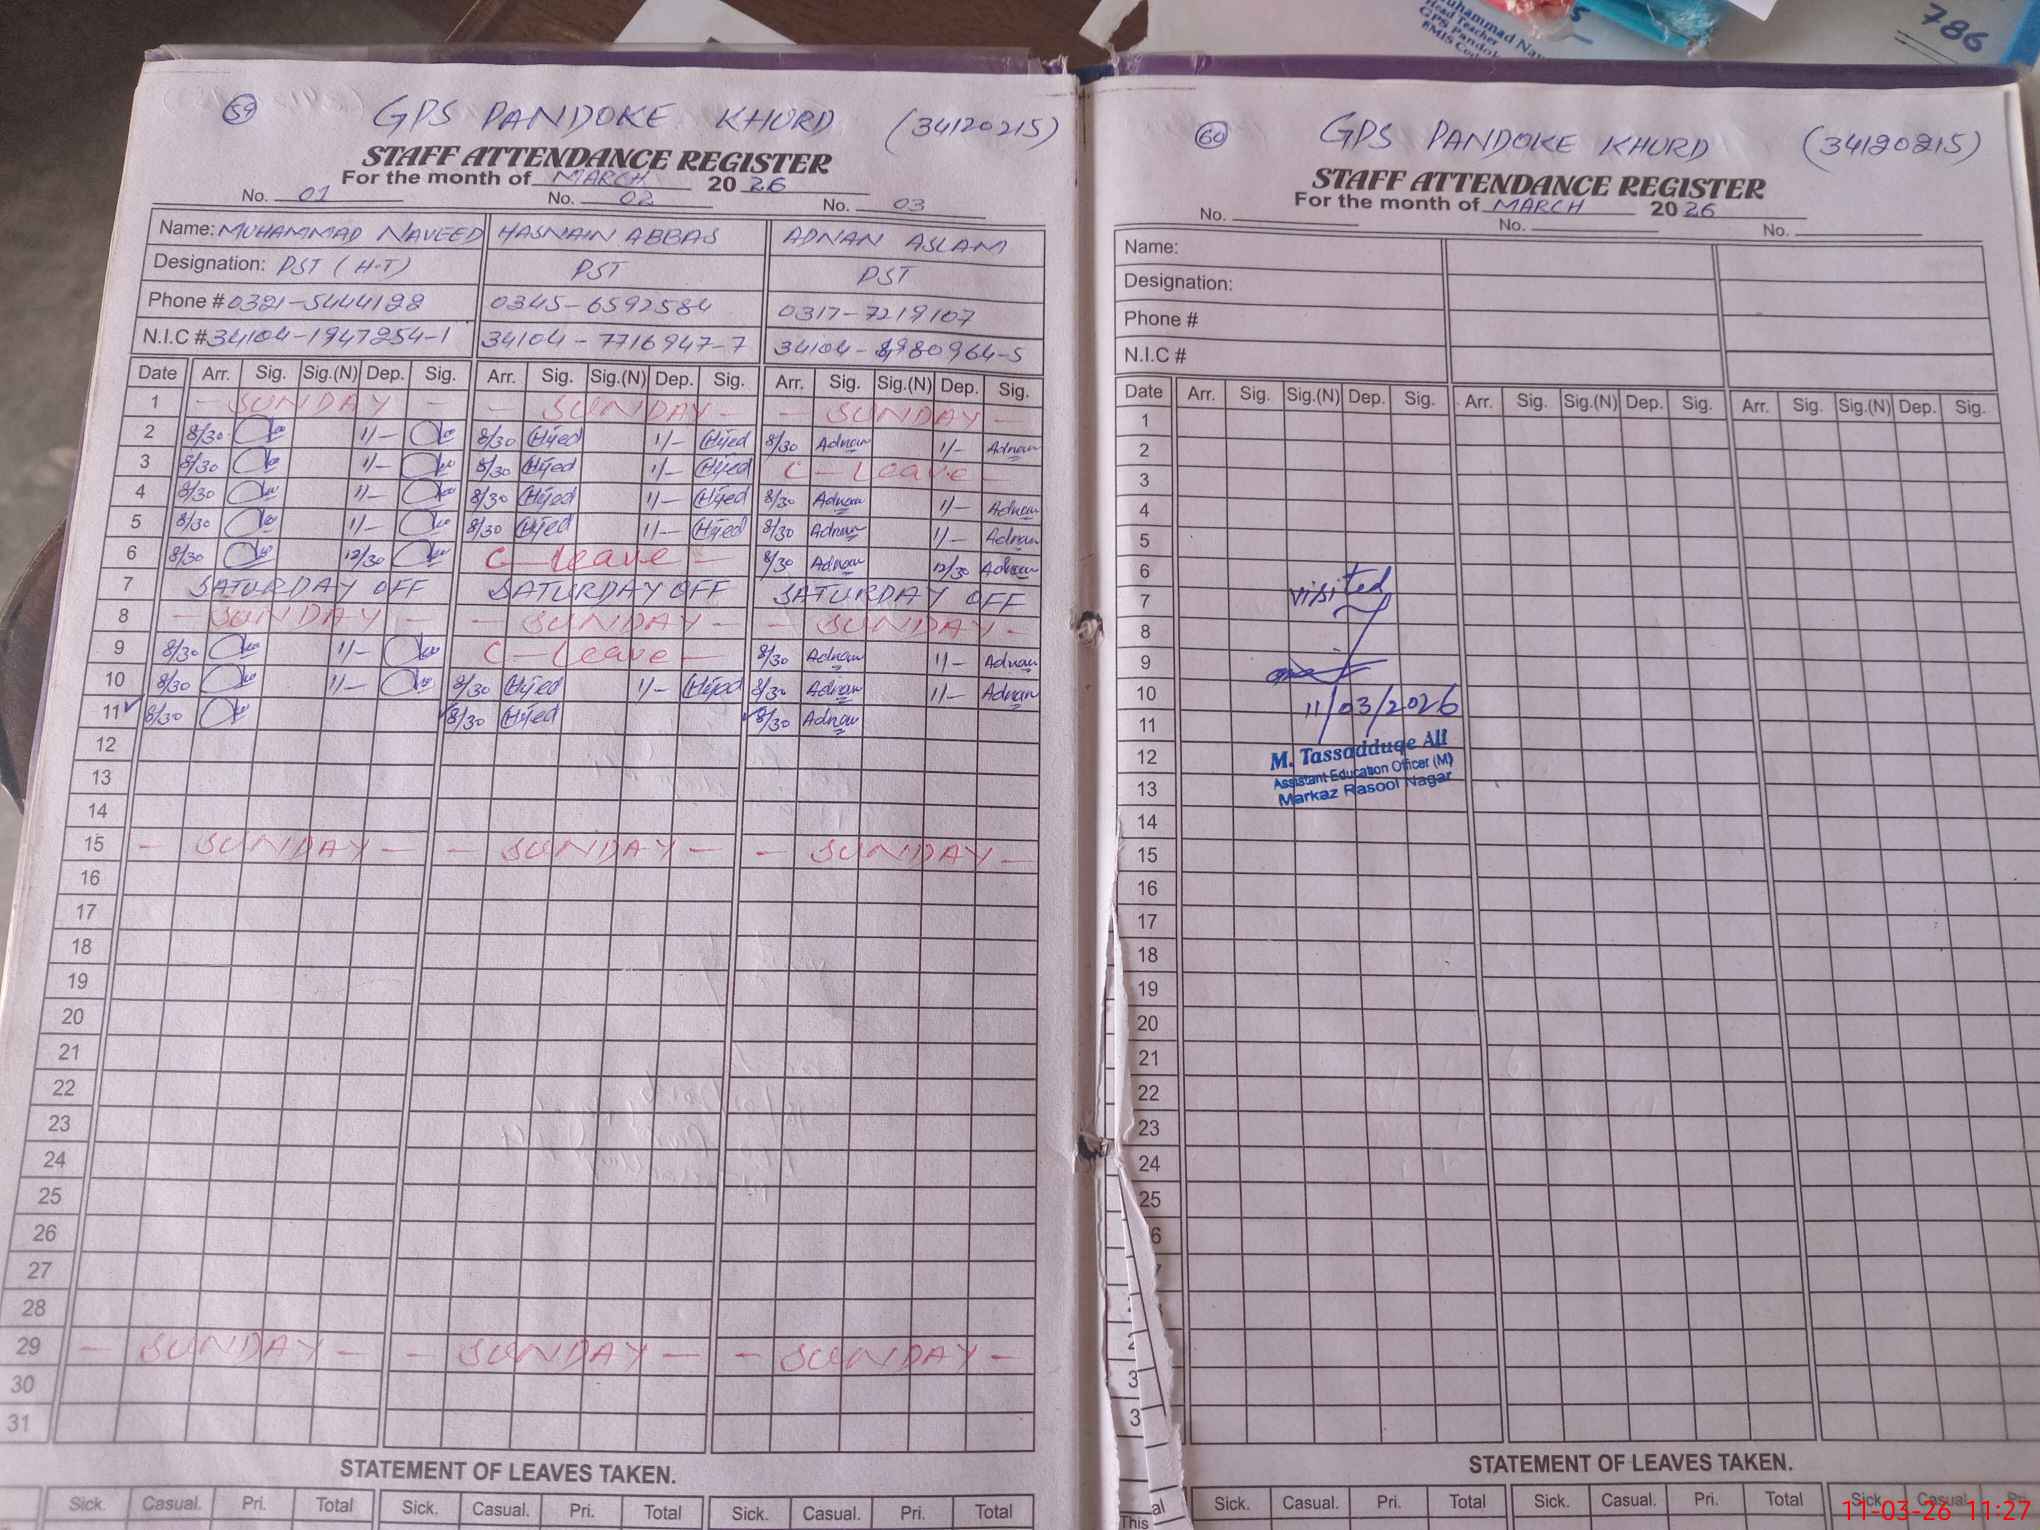 Muhammad Nav
Head Teacher
GPS Pandok
EMIS Cod
786
59
GPS PANDOKE KHURD (34120215)
STAFF ATTENDANCE REGISTER
For the month of MARCH 2026
No. 01 No. 02 No. 03
Name: MUHAMMAD NAVEED HASNAIN ABBAS ADNAN ASLAM
Designation: PST (H-T) PST PST
Phone # 0321-5444122 0345-6592584 0317-7219107
N.I.C # 34104-1947254-1 34104-7716947-7 34104-8980964-5
Date Arr. Sig. Sig.(N) Dep. Sig. Arr. Sig. Sig.(N) Dep. Sig. Arr. Sig. Sig.(N) Dep. Sig.
1 - SUNDAY - - SUNDAY - - SUNDAY -
2 8/30 1/- 8/30 1/- 8/30 Adnan 1/- Adnan
3 8/30 1/- 8/30 1/- C - Leave -
4 8/30 1/- 8/30 1/- 8/30 Adnan 1/- Adnan
5 8/30 1/- 8/30 1/- 8/30 Adnan 1/- Adnan
6 8/30 12/30 C - Leave - 8/30 Adnan 12/30 Adnan
7 SATURDAY OFF SATURDAY OFF SATURDAY OFF
8 - SUNDAY - - SUNDAY - - SUNDAY -
9 8/30 1/- C - Leave - 8/30 Adnan 1/- Adnan
10 8/30 1/- 8/30 1/- 8/30 Adnan 1/- Adnan
11 8/30 8/30 8/30 Adnan
12
13
14
15 - SUNDAY - - SUNDAY - - SUNDAY -
16
17
18
19
20
21
22
23
24
25
26
27
28
29 - SUNDAY - - SUNDAY - - SUNDAY -
30
31
STATEMENT OF LEAVES TAKEN.
Sick. Casual. Pri. Total Sick. Casual. Pri. Total Sick. Casual. Pri. Total
60
GPS PANDOKE KHURD (34120215)
STAFF ATTENDANCE REGISTER
For the month of MARCH 2026
No. No. No.
Name:
Designation:
Phone #
N.I.C #
Date Arr. Sig. Sig.(N) Dep. Sig. Arr. Sig. Sig.(N) Dep. Sig. Arr. Sig. Sig.(N) Dep. Sig.
1
2
3
4
5
6
7 visited
8
9
10
11 11/03/2026
12 M. Tassadduqe Ali
Assistant Education Officer (M)
13 Markaz Rasool Nagar
14
15
16
17
18
19
20
21
22
23
24
25
6
2
3
3
STATEMENT OF LEAVES TAKEN.
al Sick. Casual. Pri. Total Sick. Casual. Pri. Total Sick. Casual. Pri.
This
11-03-26 11:27